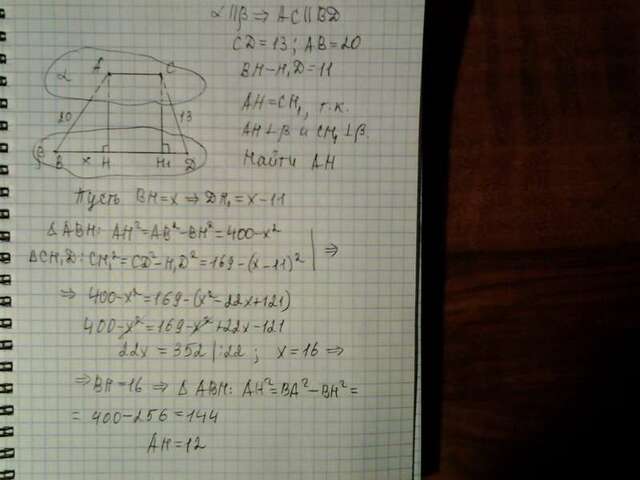 α ∥ β ⇒ AC ∥ BD
CD = 13; AB = 20
BH − H₁D = 11
AH = CH₁, т.к.
AH ⊥ β и CH₁ ⊥ β.
Найти AH
α A C
20 13
β B x H H₁ D
Пусть BH = x ⇒ DH₁ = x − 11
△ABH: AH² = AB² − BH² = 400 − x²
△CH₁D: CH₁² = CD² − H₁D² = 169 − (x − 11)² | ⇒
⇒ 400 − x² = 169 − (x² − 22x + 121)
400 − x² = 169 − x² + 22x − 121
22x = 352 | :22 ; x = 16 ⇒
⇒ BH = 16 ⇒ △ABH: AH² = BA² − BH² =
= 400 − 256 = 144
AH = 12